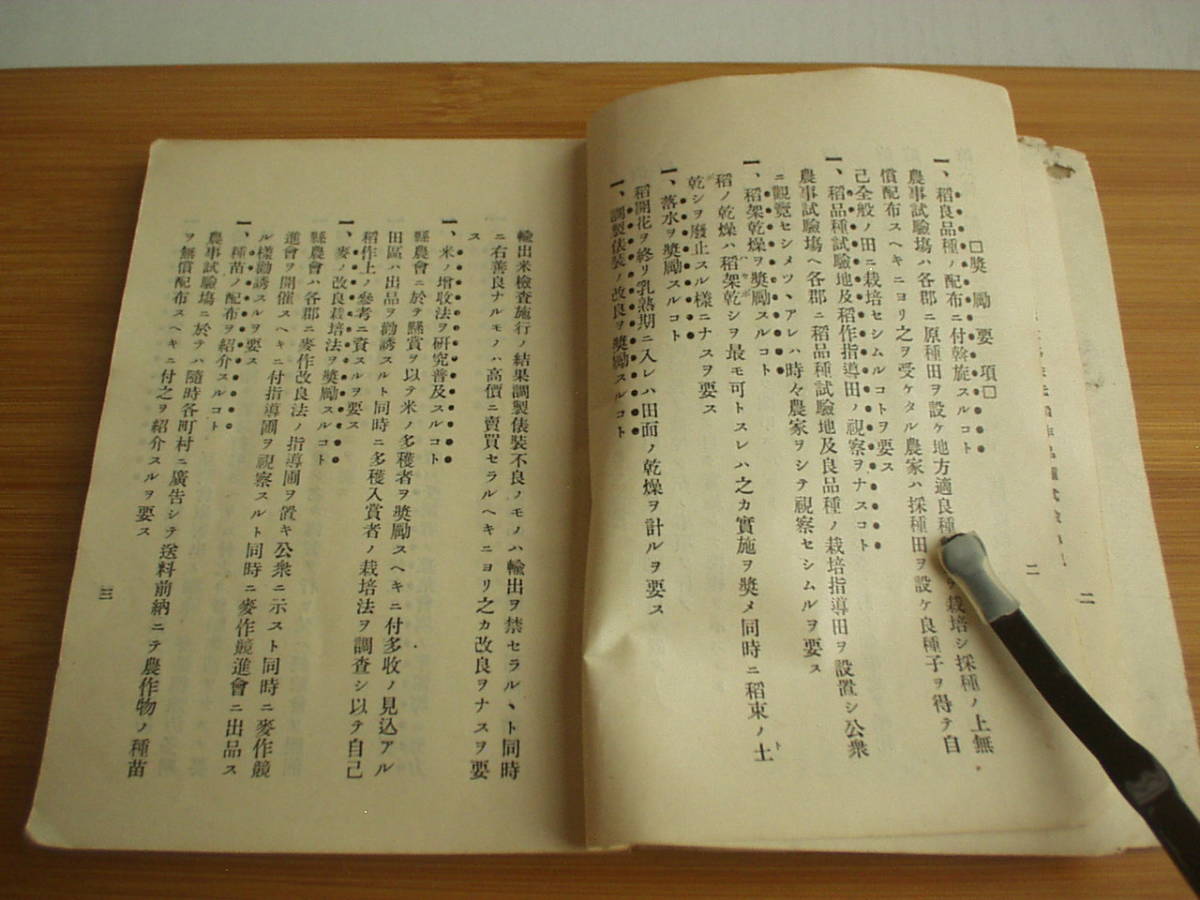 □獎勵要項□
一、稻良品種ノ配布ニ付斡旋スルコト
農事試驗塲ハ各郡ニ原種田ヲ設ケ地方適良種 栽培シ採種ノ上無
償配布スヘキニヨリ之ヲ受ケタル農家ハ採種田ヲ設ケ良種子ヲ得テ自
己全般ノ田ニ栽培セシムルコトヲ要ス
一、稻品種試驗地及稻作指導田ノ視察ヲナスコト
農事試驗塲ヘ各郡ニ稻品種試驗地及良品種ノ栽培指導田ヲ設置シ公衆
ニ觀覽セシメツヽアレハ時々農家ヲシテ視察セシムルヲ要ス
一、稻架乾燥ヲ獎勵スルコト
稻ノ乾燥ハ稻架乾シヲ最モ可トスレハ之カ實施ヲ獎メ同時ニ稻束ノ土
乾シヲ廢止スル樣ニナスヲ要ス
一、落水ヲ獎勵スルコト
稻開花ヲ終リ乳熟期ニ入レハ田面ノ乾燥ヲ計ルヲ要ス
一、調製俵裝ノ改良ヲ獎勵スルコト
二
二
輸出米檢查施行ノ結果調製俵裝不良ノモノハ輸出ヲ禁セラルヽト同時
ニ右善良ナルモノハ高價ニ賣買セラルヘキニヨリ之カ改良ヲナスヲ要
ス
一、米ノ增收法ヲ硏究普及スルコト
縣農會ニ於テ懸賞ヲ以テ米ノ多穫者ヲ獎勵スヘキニ付多收ノ見込アル
田區ハ出品ヲ勸誘スルト同時ニ多穫入賞者ノ栽培法ヲ調査シ以テ自己
稻作上ノ參考ニ資スルヲ要ス
一、麥ノ改良栽培法ヲ獎勵スルコト
縣農會ハ各郡ニ麥作改良法ノ指導圃ヲ置キ公衆ニ示スト同時ニ麥作競
進會ヲ開催スヘキニ付指導圃ヲ視察スルト同時ニ麥作競進會ニ出品ス
ル樣勸誘スルヲ要ス
一、種苗ノ配布ヲ紹介スルコト
農事試驗塲ニ於テハ隨時各町村ニ廣告シテ送料前納ニテ農作物ノ種苗
ヲ無償配布スヘキニ付之ヲ紹介スルヲ要ス
三